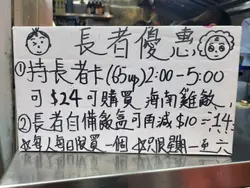 長者優惠
①持長者卡(65up)2:00-5:00
可$24可購買 海南雞飯
②長者自備飯盒可再減$10=14
*每人每日限買一個 *只限星期一至六